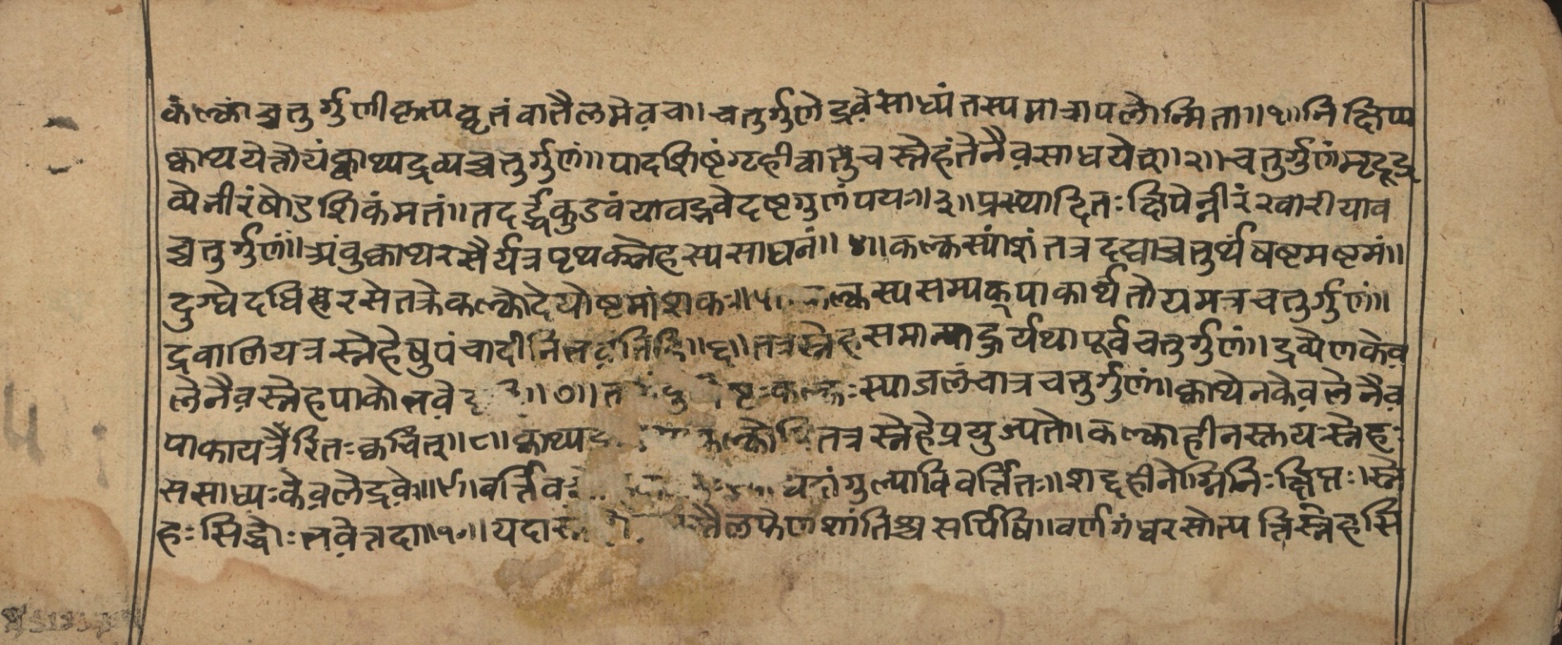 कल्काच्चतुर्गुणीकृत्य घृतं वा तैलमेव च॥ चतुर्गुणे द्रवे साध्यं तस्य मात्रा पलोन्मिता॥१॥ निक्षिप्य
क्वाथयेत्तोयं क्वाथ्यद्रव्यच्चतुर्गुणं॥ पादशिष्टं गृहीत्वा तु च स्नेहं तेनैव साधयेत्॥२॥ चतुर्गुणं मृदूद्र
व्ये नीरं षोडशिकं मतं॥ तदर्द्धकुडवं यावद्भवेदष्टगुणं पयः॥३॥ प्रस्थादितः क्षिपेन्नीरं खारी याव
च्चतुर्गुणं॥ अंबुक्वाथरसैर्यत्र पृथक्स्नेहस्य साधनं॥४॥ कल्कस्यांशं तत्र दद्याच्चतुर्थं षष्टमष्टमं॥
दुग्धे दधि स्वरसे तक्रे कल्को देयोष्टमांशकः॥५॥ कल्कस्य सम्यक् पाकार्थं तोयमत्र चतुर्गुणं॥
द्रवाणि यत्र स्नेहेषु पंचादीनि भवंति हि॥६॥ तत्र स्नेहसमान्याहुर्यथापूर्वं चतुर्गुणं॥ द्रव्येण केव
लेनैव स्नेहपाको भवे ॥७॥ कल्कः स्याज्जलं चात्र चतुर्गुणं॥ क्वाथेन केवलेनैव
पाको यत्रेरितः क्वचित्॥८॥ क्वाथ्य कल्कोपि तत्र स्नेहे प्रयुज्यते॥ कल्कहीनस्तु यः स्नेहः
स साध्यः केवलैद्रवे॥९॥ वर्त्तिव यदांगुल्या विवर्त्तितः॥ शद्दहीनोग्निनिःक्षिप्तः॥ स्ने
हः सिद्धोः भवेत्तदा॥१०॥ यदा तैल फेणशांतिश्च सर्पिषि॥ वर्णगंधरसोत्पत्ति स्नेहसि